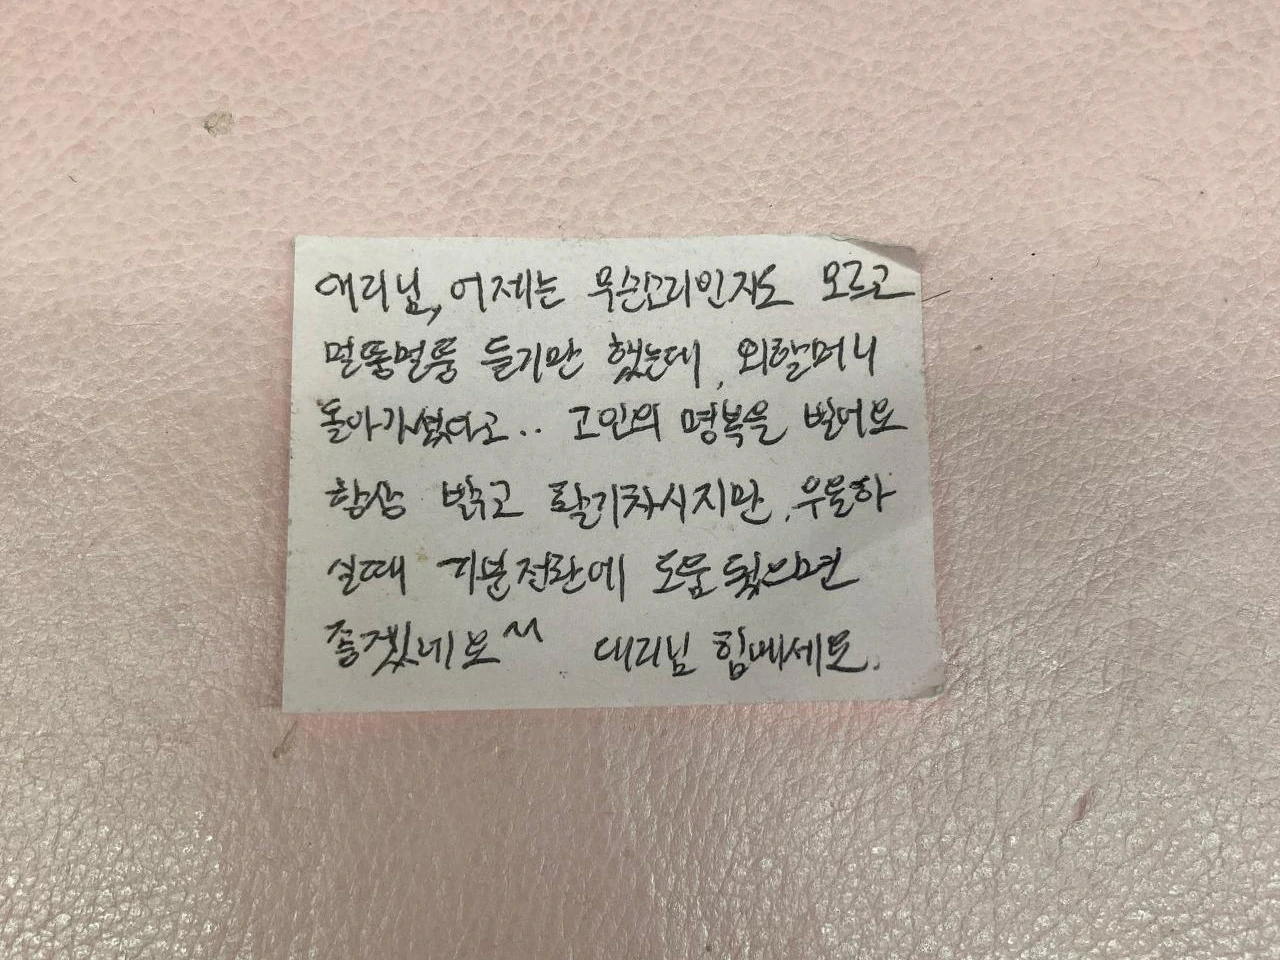 애리님, 어제는 무슨소리인지도 모르고
멀뚱멀뚱 듣기만 했는데, 외할머니
돌아가셨다고.. 고인의 명복을 빌어요
항상 밝고 활기차시지만, 우울하
실때 기분전환에 도움 됐으면
좋겠네요^^ 대리님 힘내세요.